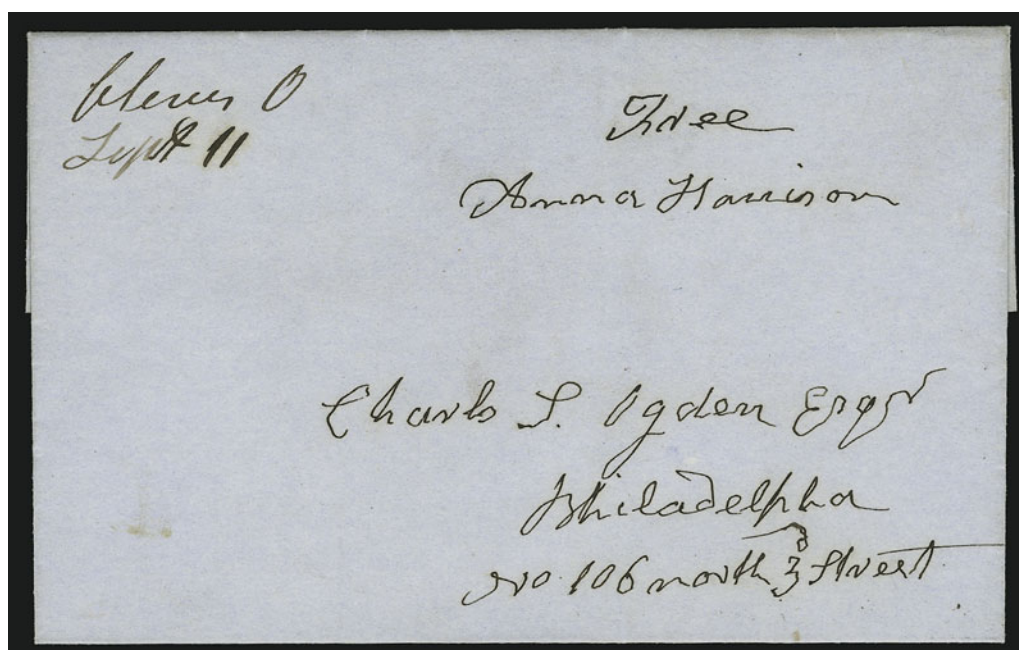 Cleves O
Sept 11
Free
Anna Harrison
Charles S. Ogden Esqr
Philadelpha
No 106 north 3 Street